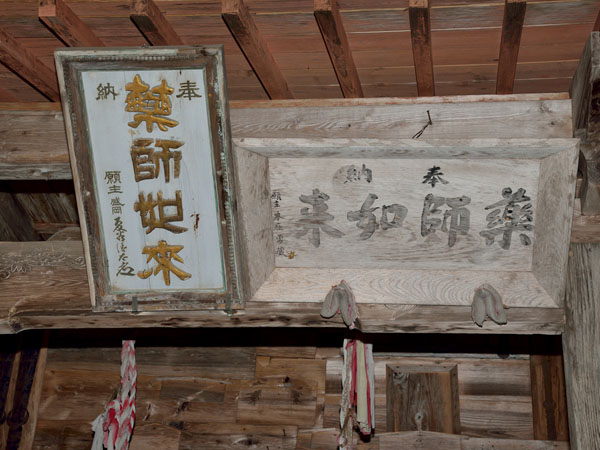 奉納
薬師如来
願主
奉納
薬師如来
願主